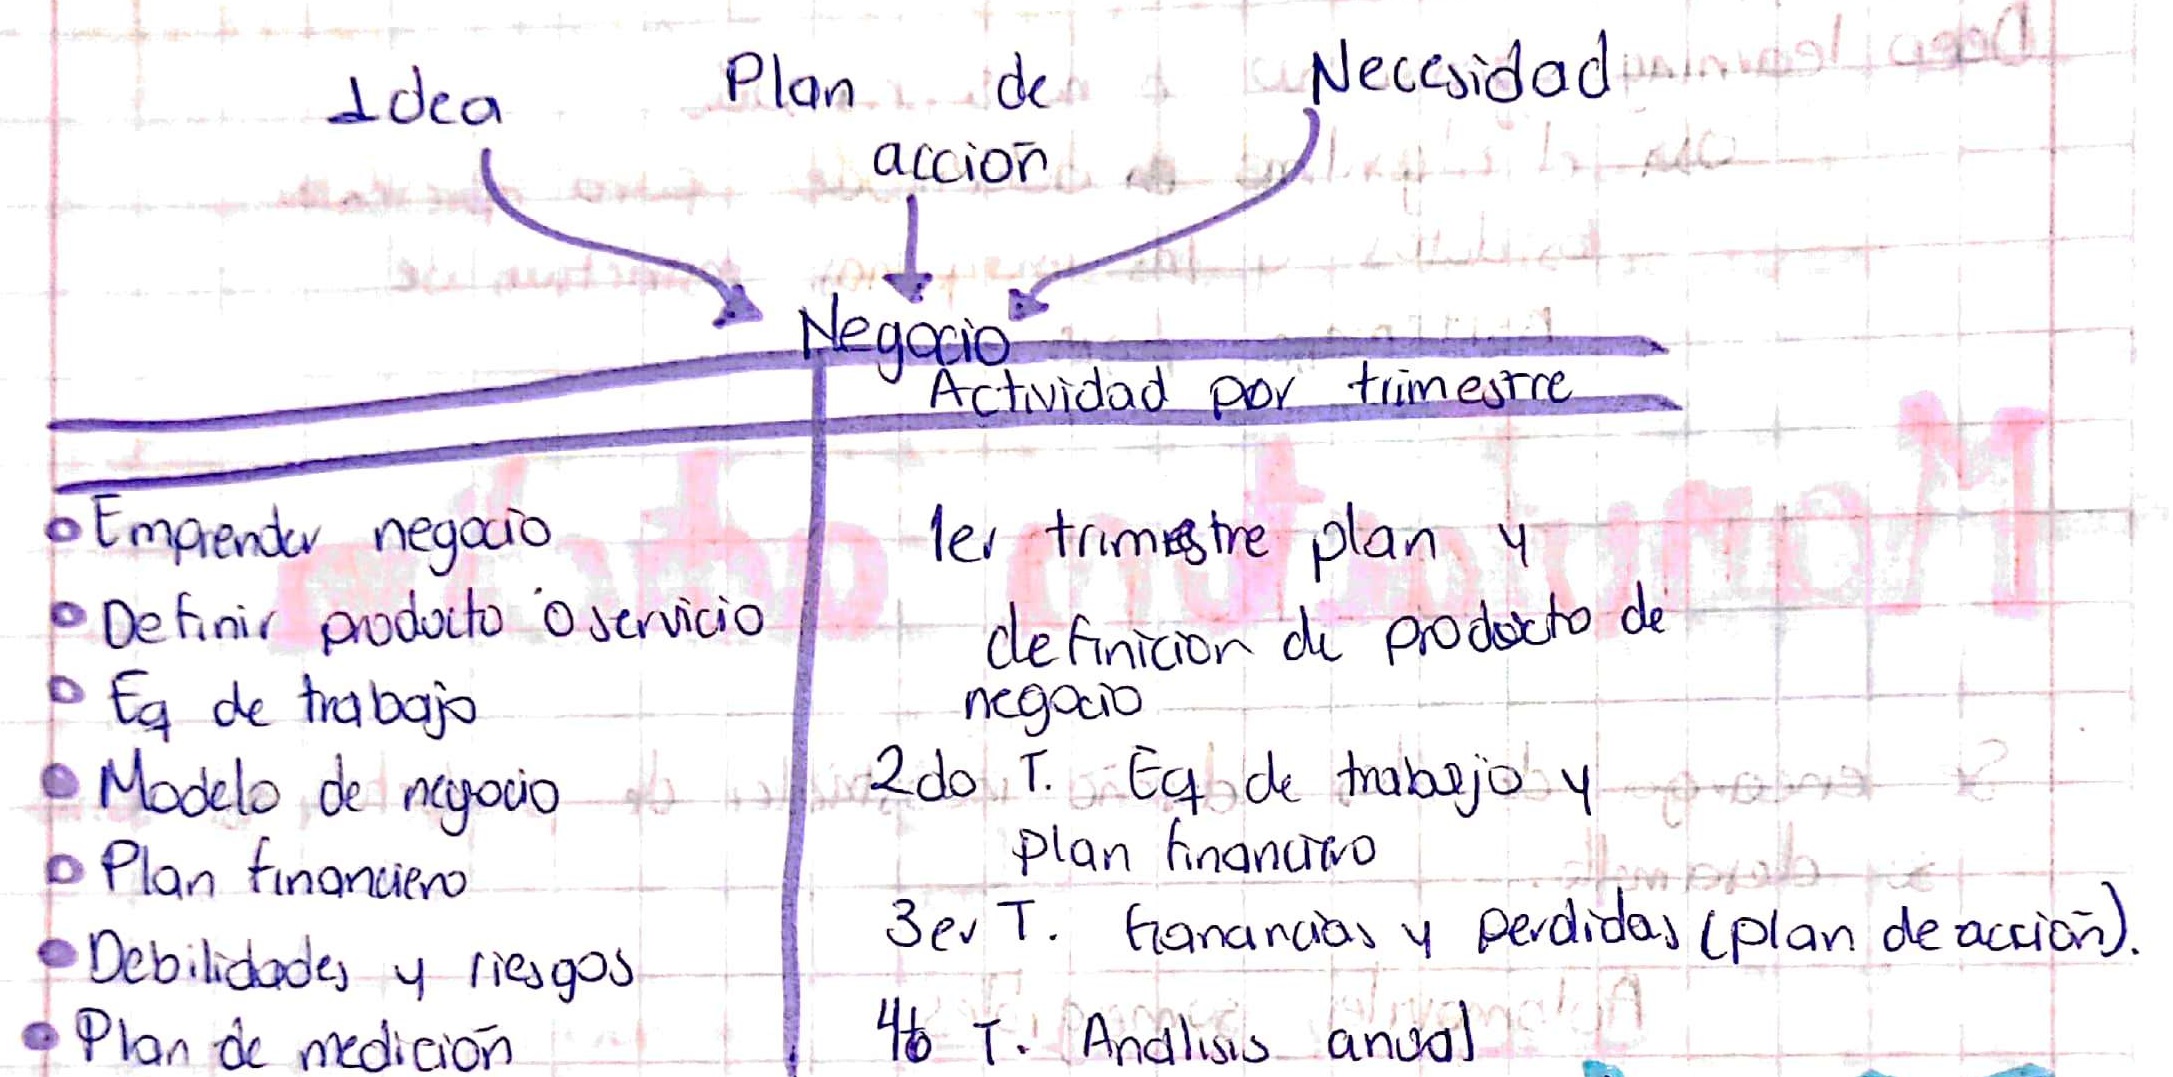 Idea Plan de Necesidad
acción
Negocio
Actividad por trimestre
Emprender negocio
Definir producto o servicio
Eq de trabajo
Modelo de negocio
Plan financiero
Debilidades y riesgos
Plan de medición
1er trimestre plan y
definicion de producto de
negocio
2do T. Eq de trabajo y
plan financiero
3er T. Ganancias y perdidas (plan de acción).
4to T. Análisis anual